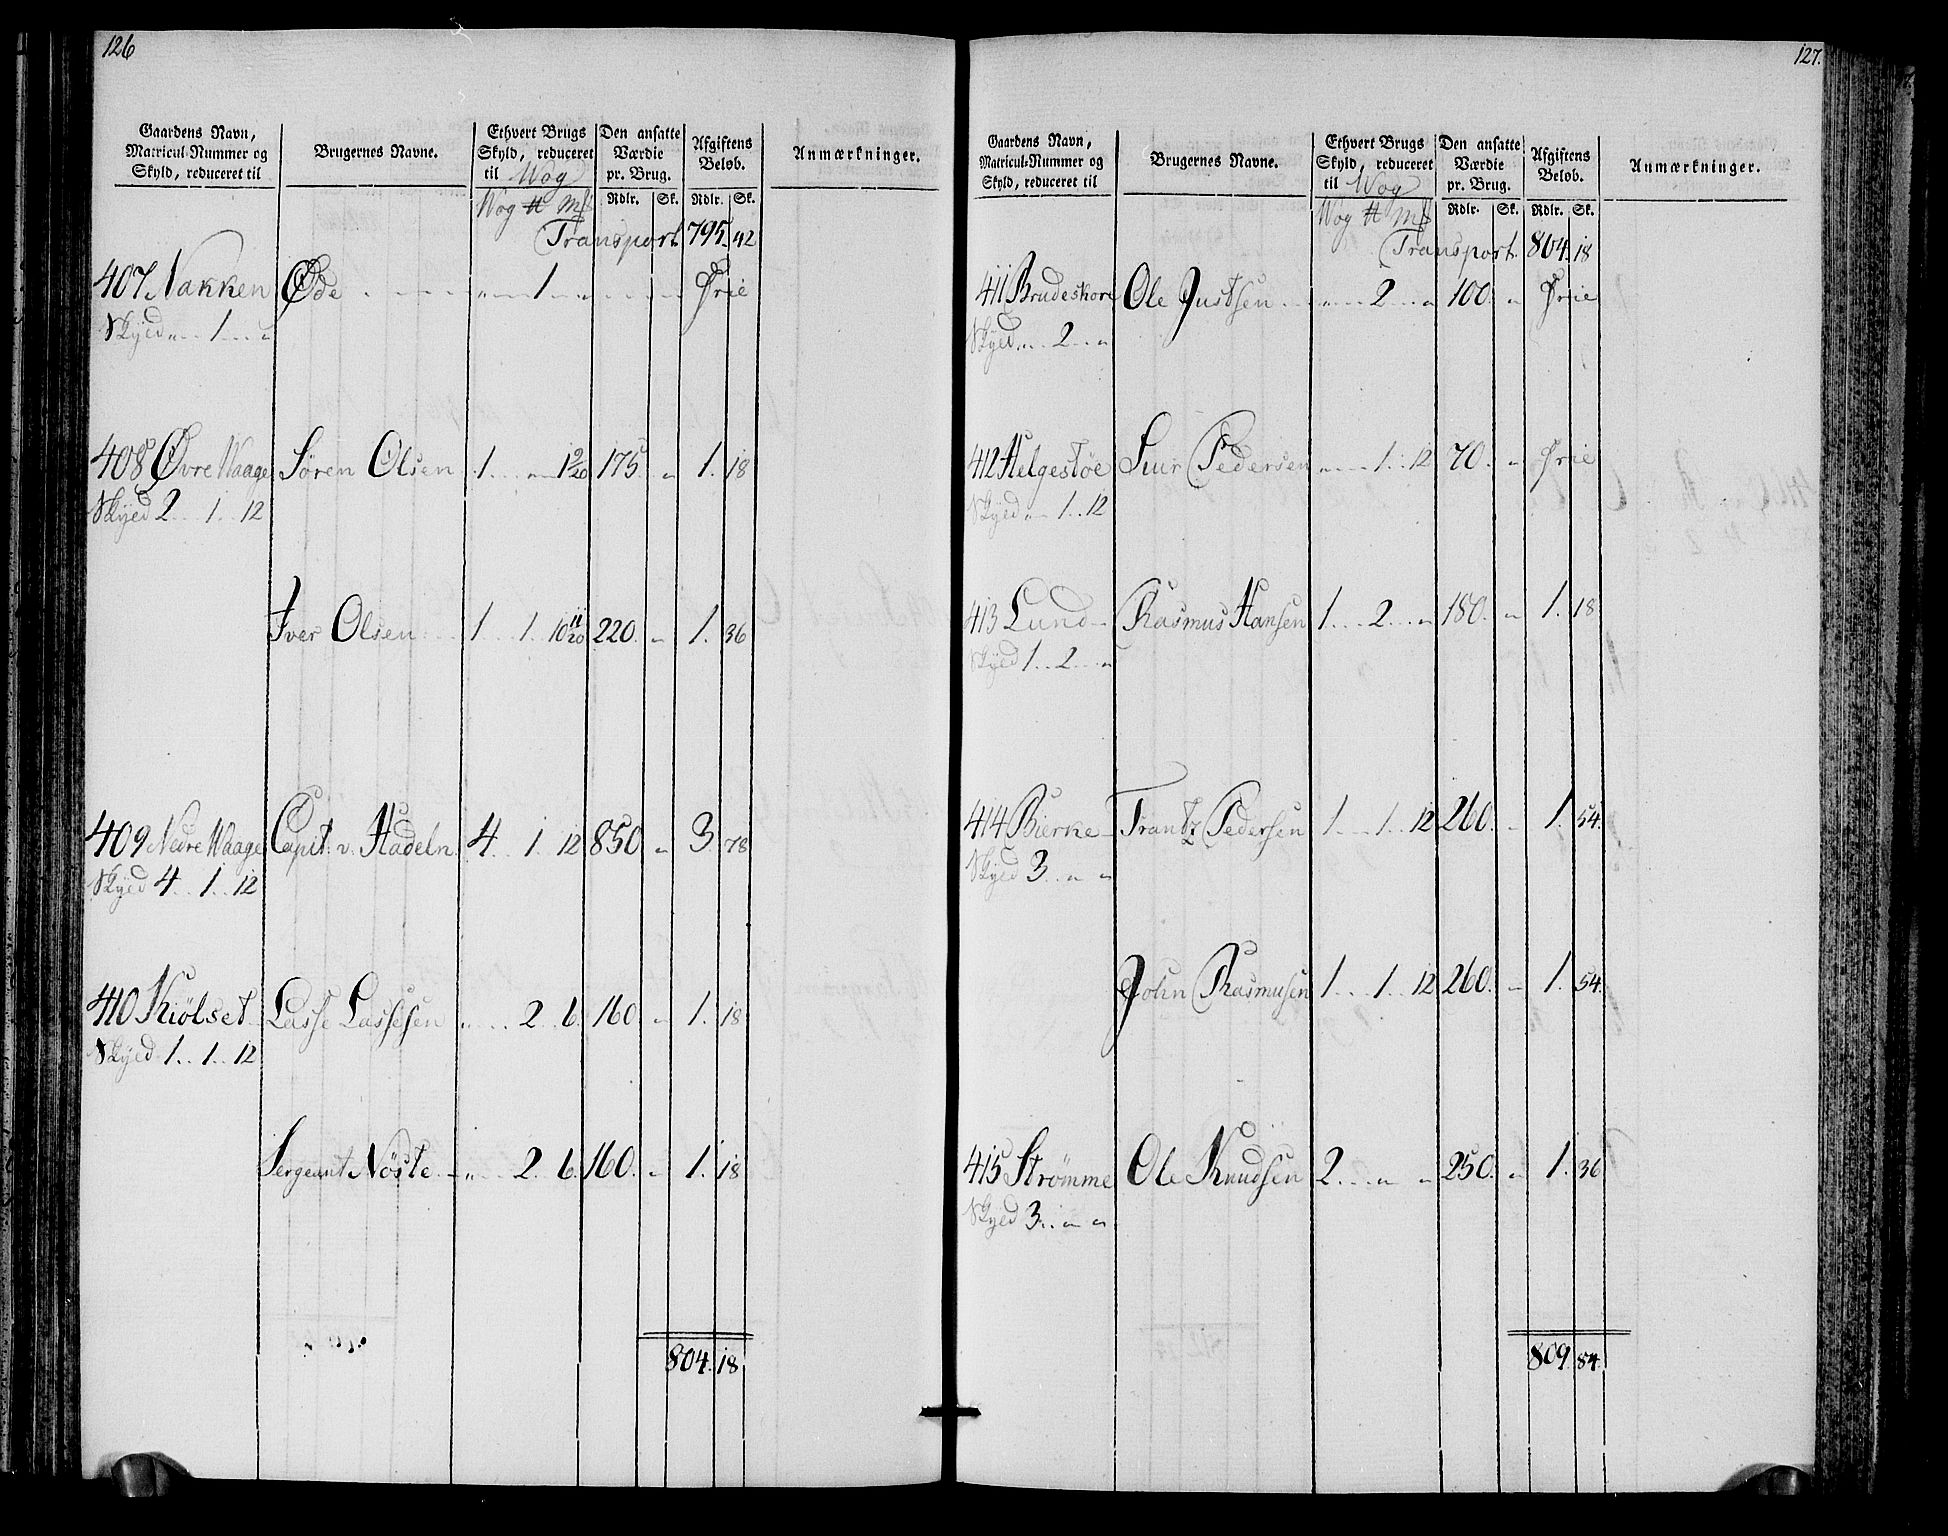 126
Gaardens Navn, Matricul-Nummer og Skyld, reduceret til
Brugernes Navne.
Ethvert Brugs Skyld, reduceret til Wog
Den ansatte Værdie pr. Brug.
Afgiftens Beløb.
Anmærkninger.
Wog ℔ Mk Rdlr. Sk. Rdlr. Sk.
Transport 795. 42
407 Nakken Øde . 1 . Frie
Skyld „ 1 „
408 Øvre Waage Sören Olsen 1 „ 1 9/20 175. „ 1. 18
Skyld 2 .. 1 .. 12
Iver Olsen 1 .. 1 10 11/20 220. „ 1. 36
409 Nedre Waage Capit. v. Hadeln 4 .. 1 .. 12 850 „ 3. 78
Skyld 4 .. 1 .. 12
410 Kiölset Lasse Lassesen „ 2 .. 6. 160 „ 1. 18
Skyld 1 .. 1 .. 12
Sergeant Nöste „ 2 .. 6. 160. „ 1. 18
804. 18
127.
Gaardens Navn, Matricul-Nummer og Skyld, reduceret til
Brugernes Navne.
Ethvert Brugs Skyld, reduceret til Wog
Den ansatte Værdie pr. Brug.
Afgiftens Beløb.
Anmærkninger.
Wog ℔ Mk Rdlr. Sk. Rdlr. Sk.
Transport. 804. 18
411 Brudeskore Ole Justsen „ 2 „ 100. „ Frie
Skyld „ 2 „
412 Helgestøe Siur Pedersen „ 1 .. 12 70. „ Frie
Skyld „ 1 .. 12
413 Lund Rasmus Hansen 1 .. 2 „ 180. „ 1. 18
Skyld 1 .. 2 „
414 Bierke Frantz Pedersen 1 .. 1 .. 12 260. „ 1. 54.
Skyld 3 .. „ „
John Rasmusen 1 .. 1 .. 12 260. „ 1. 54.
415 Strömme Ole Knudsen 2 .. „ „ 250. „ 1. 36
Skyld 3 .. „ „
809. 84.